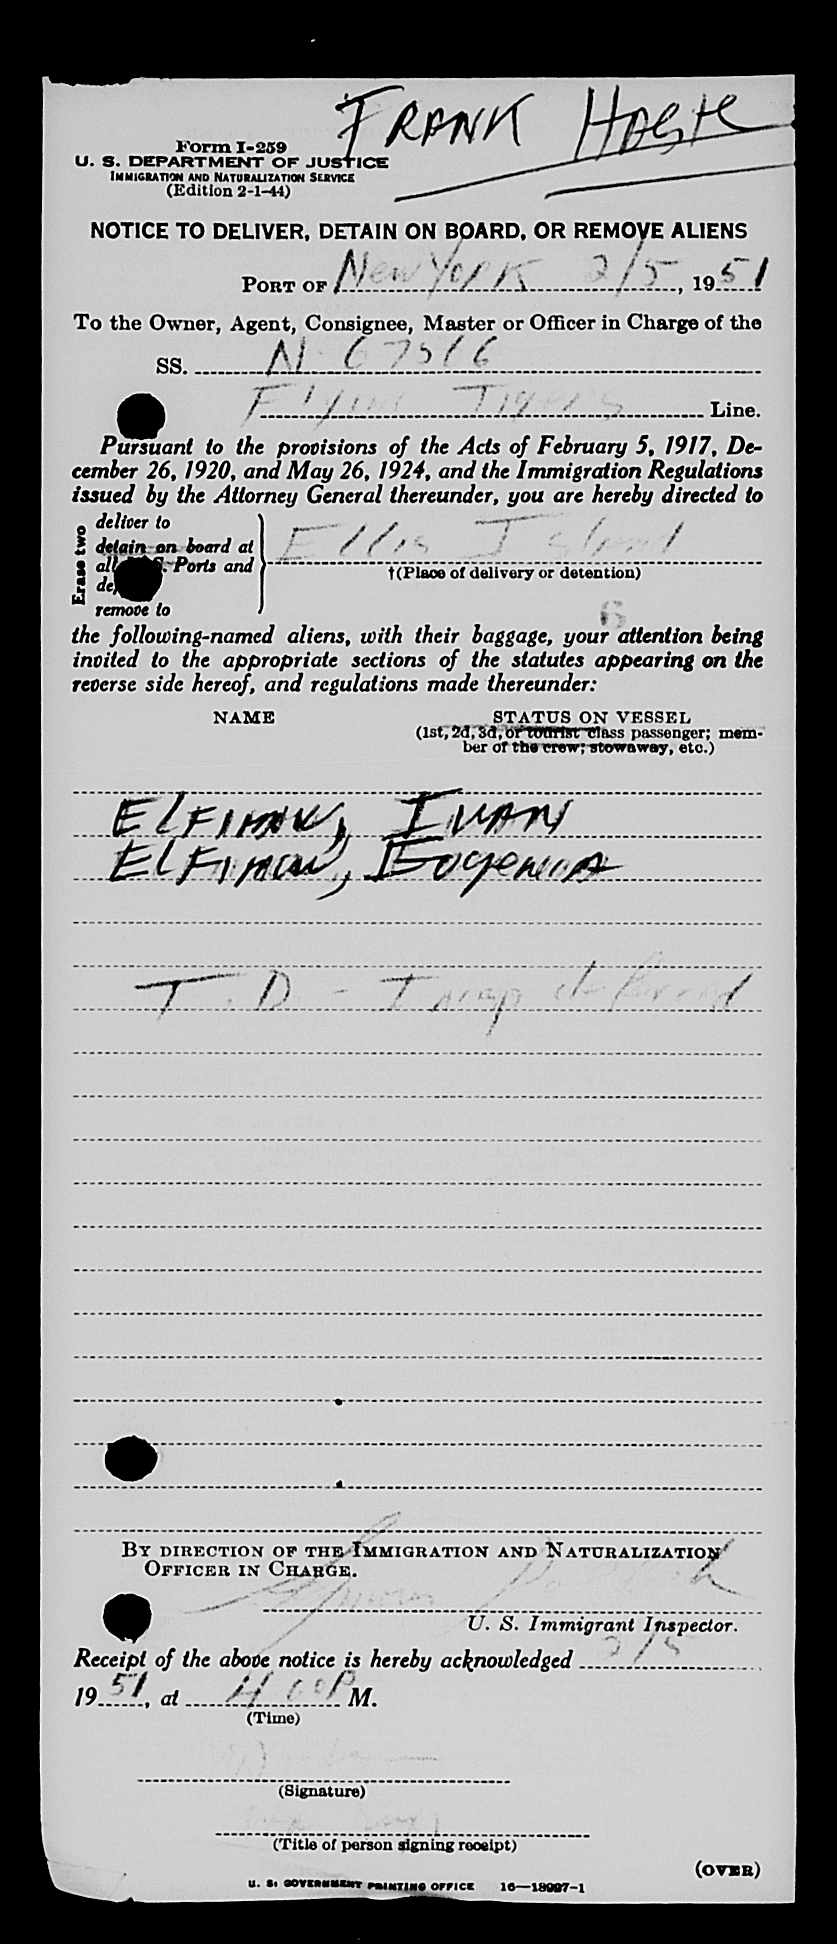 FRANK
Form I-259
U. S. DEPARTMENT OF JUSTICE
IMMIGRATION AND NATURALIZATION SERVICE
(Edition 2-1-44)
NOTICE TO DELIVER, DETAIN ON BOARD, OR REMOVE ALIENS
PORT OF New York 2/5, 1951
To the Owner, Agent, Consignee, Master or Officer in Charge of the
SS. N-67516
Flying Tigers Line.
Pursuant to the provisions of the Acts of February 5, 1917, De-
cember 26, 1920, and May 26, 1924, and the Immigration Regulations
issued by the Attorney General thereunder, you are hereby directed to
Erase two
deliver to
detain on board at
all S. Ports and
de
remove to
Ellis Island
†(Place of delivery or detention)
6
the following-named aliens, with their baggage, your attention being
invited to the appropriate sections of the statutes appearing on the
reverse side hereof, and regulations made thereunder:
NAME STATUS ON VESSEL
(1st, 2d, 3d, or tourist class passenger; mem-
ber of the crew; stowaway, etc.)
ELFIMOW, IWAN
ELFIMOW, Eugenia
T.D - Insp deferred
BY DIRECTION OF THE IMMIGRATION AND NATURALIZATION
OFFICER IN CHARGE.
U. S. Immigrant Inspector.
Receipt of the above notice is hereby acknowledged 2/5
1951, at 4 00P M.
(Time)
(Signature)
(Title of person signing receipt)
(OVER)
U. S. GOVERNMENT PRINTING OFFICE 16—18997-1